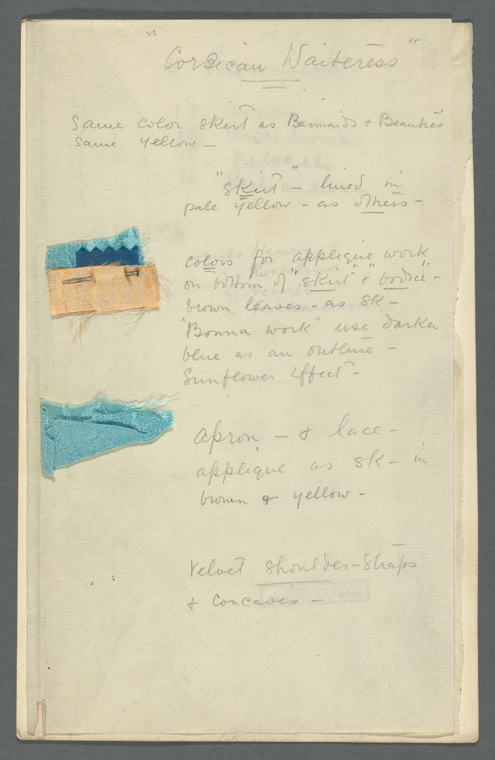 "Corsican Waitress"
Same color skirt as Barmaids & Beauties
Same yellow —
"skirt" — lined in
pale yellow — as others —
colors for applique work
on bottom of "skirt" & "bodice" —
brown leaves — as sk —
"Bonna work" use darker
blue as an outline —
Sunflower effect —
apron — & lace —
applique as sk — in
brown & yellow —
Velvet shoulder-straps
& concaves —